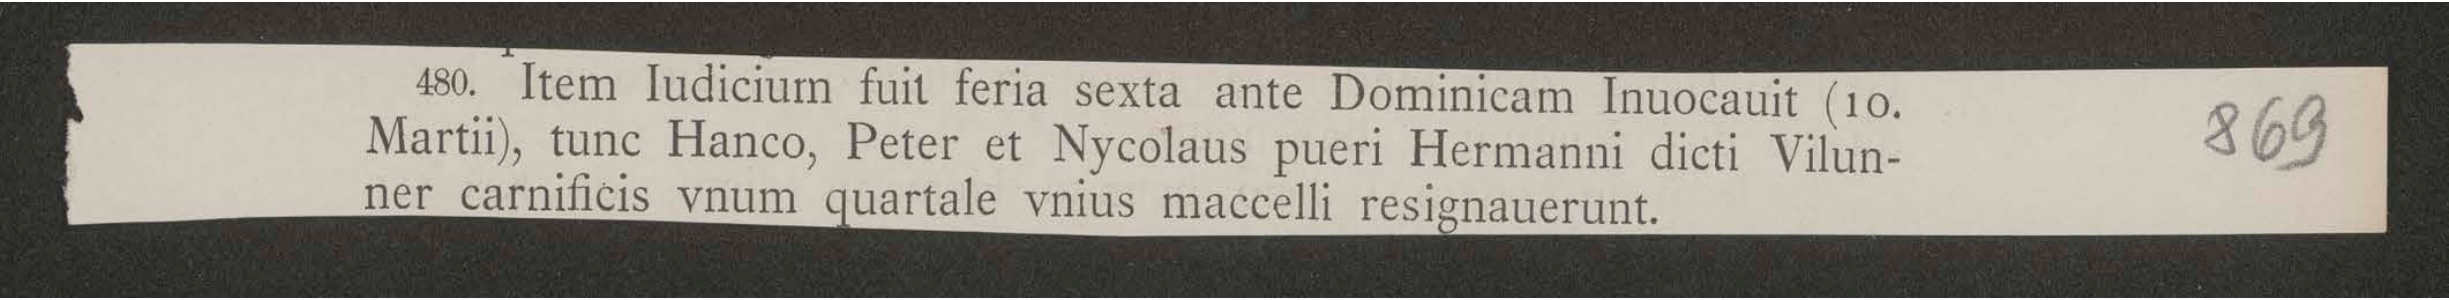 480. Item Iudicium fuit feria sexta ante Dominicam Inuocauit (10.
Martii), tunc Hanco, Peter et Nycolaus pueri Hermanni dicti Vilun-
ner carnificis vnum quartale vnius maccelli resignauerunt.
869